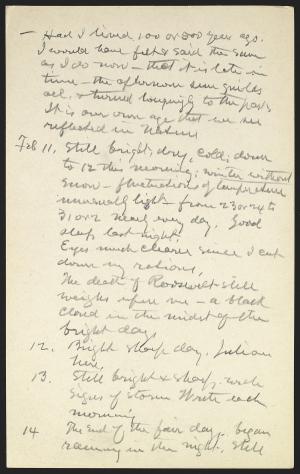 — Had I lived 100 or 200 years ago.
I would have felt & said the same
as I do now — that it is late in
time — the afternoon sun gilds
all, & turned longingly to the past.
It is our own age that we see
reflected in Nature
Feb 11, Still bright, dry, cold; down
to 12 this morning; winter without
snow — fluctuations of temperature
unusually light from 23 or 24 to
31 or 2 nearly every day. Good
sleep last night,
Eyes much clearer since I cut
down my rations,
The death of Roosevelt still
weighs upon me — a black
cloud in the midst of the
bright day,
12. Bright sharp day. Julian
here,
13. Still bright & sharp, with
signs of storm Write each
morning
14 The end of the fair day, began
raining in the night, still